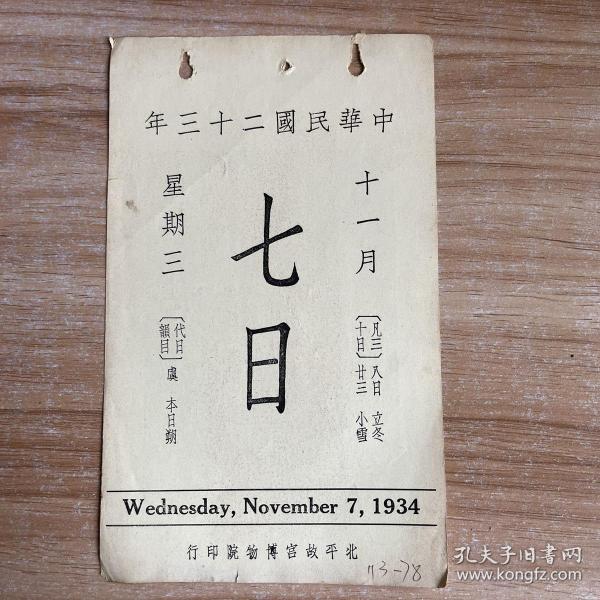 中華民國二十三年
十一月
七日
星期三
〔凡三十日〕
八日 立冬
廿三 小雪
〔代日韻目〕
虞 本日朔
Wednesday, November 7, 1934
北平故宮博物院印行
113-78
孔夫子旧书网
www.kongfz.com